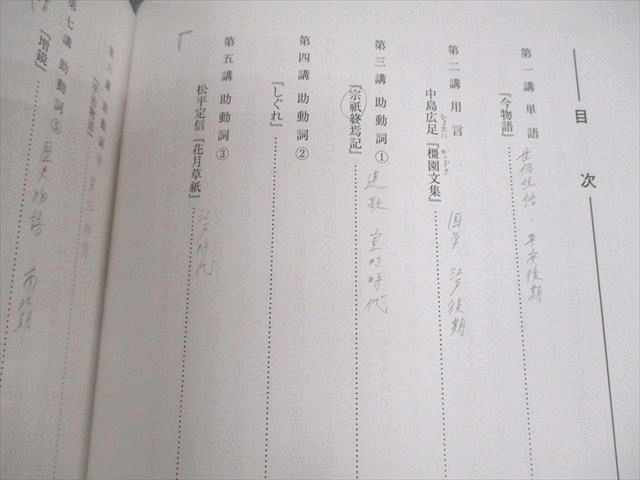 目次
第一講 単語
『今物語』
世俗説話。平安後期
第二講 用言
中島広足『橿園文集』
国学 江戸後期
第三講 助動詞①
『宗祇終焉記』
連歌 室町時代
第四講 助動詞②
『しぐれ』
第五講 助動詞③
松平定信『花月草紙』
江戸時代
第六講 助動詞
第七講 助動詞⑤
『増鏡』
歴史物語 南北朝